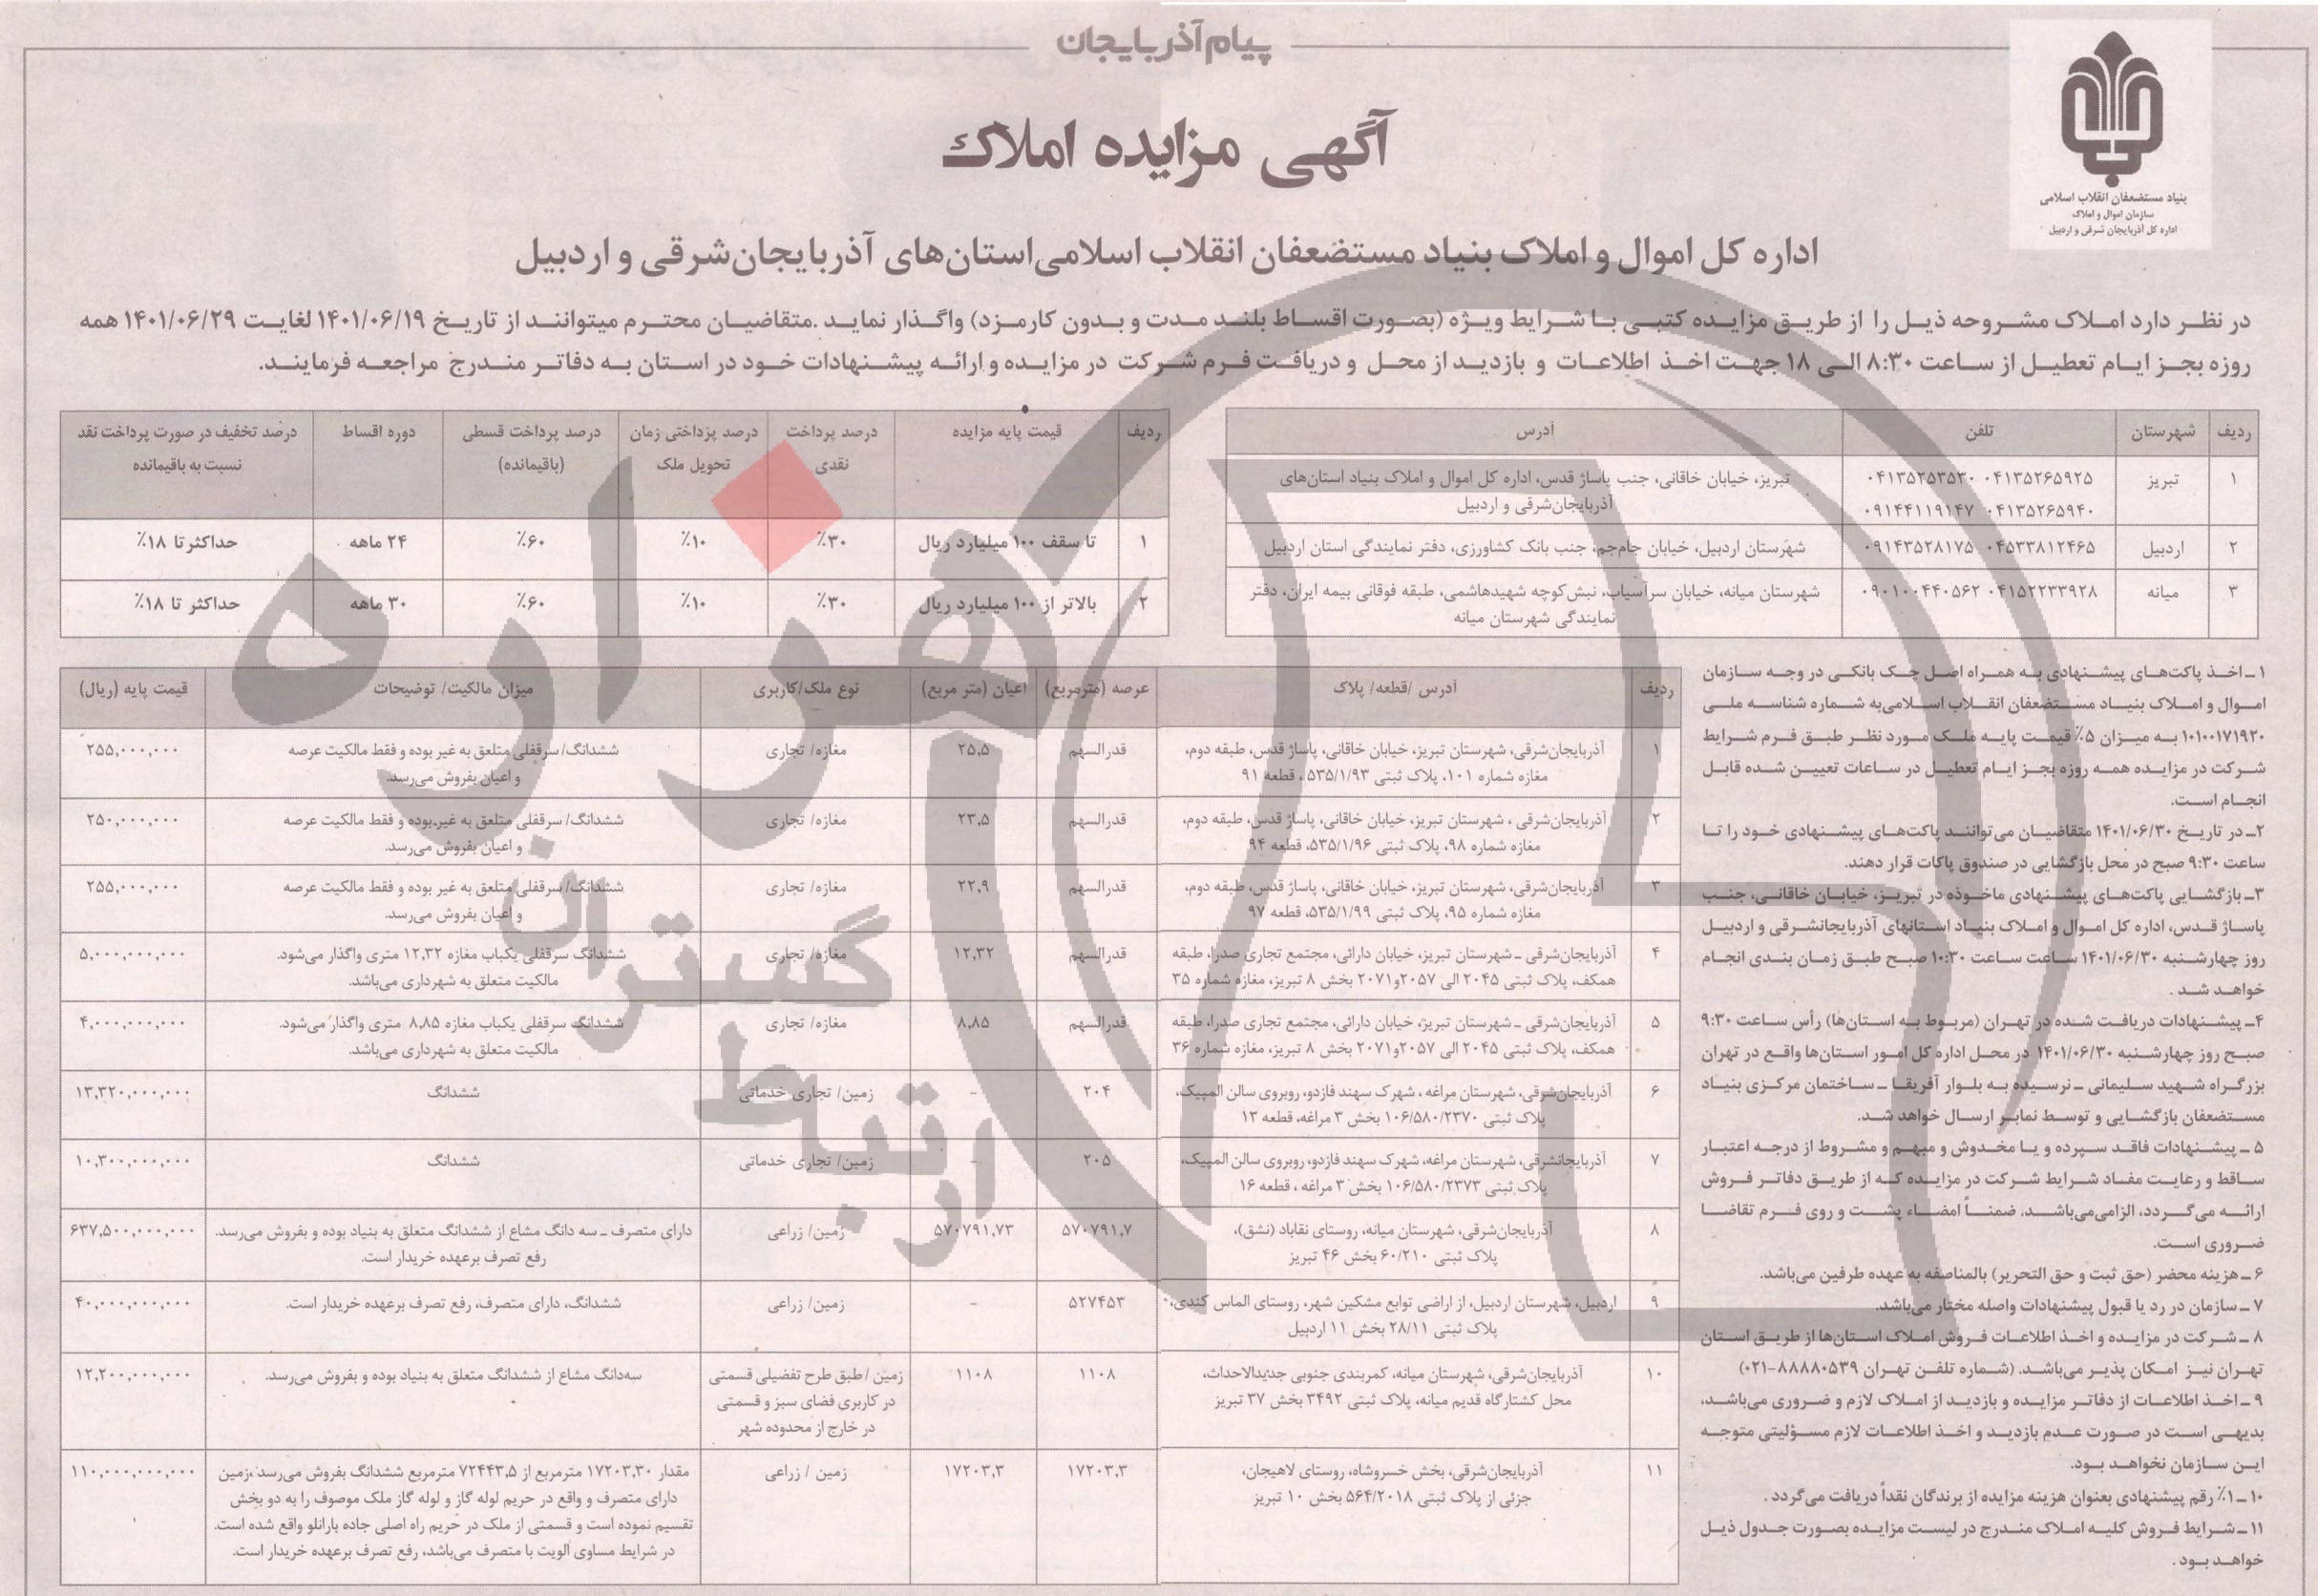 پیام آذربایجان
بنیاد مستضعفان انقلاب اسلامی
سازمان اموال و املاک
اداره کل آذربایجان شرقی و اردبیل
آگهی مزایده املاک
اداره کل اموال و املاک بنیاد مستضعفان انقلاب اسلامی استان‌های آذربایجان‌شرقی و اردبیل
در نظر دارد املاک مشروحه ذیل را از طریق مزایده کتبی با شرایط ویژه (بصورت اقساط بلند مدت و بدون کارمزد) واگذار نماید .متقاضیان محترم میتوانند از تاریخ ۱۴۰۱/۰۶/۱۹ لغایت ۱۴۰۱/۰۶/۲۹ همه
روزه بجز ایام تعطیل از ساعت ۸:۳۰ الی ۱۸ جهت اخذ اطلاعات و بازدید از محل و دریافت فرم شرکت در مزایده و ارائه پیشنهادات خود در استان به دفاتر مندرج مراجعه فرمایند.
ردیف شهرستان تلفن آدرس
۱ تبریز ۰۴۱۳۵۲۶۵۹۲۵ ۰۴۱۳۵۲۵۳۵۳۰ تبریز، خیابان خاقانی، جنب پاساژ قدس، اداره کل اموال و املاک بنیاد استان‌های
۰۴۱۳۵۲۶۵۹۴۰ ۰۹۱۴۴۱۱۹۱۴۷ آذربایجان‌شرقی و اردبیل
۲ اردبیل ۰۴۵۳۳۸۱۲۴۶۵ ۰۹۱۴۳۵۲۸۱۷۵ شهرستان اردبیل، خیابان جام‌جم، جنب بانک کشاورزی، دفتر نمایندگی استان اردبیل
۳ میانه ۰۴۱۵۲۲۳۳۹۲۸ ۰۹۰۱۰۰۴۴۰۵۶۲ شهرستان میانه، خیابان سرآسیاب، نبش کوچه شهیدهاشمی، طبقه فوقانی بیمه ایران، دفتر
نمایندگی شهرستان میانه
ردیف قیمت پایه مزایده درصد پرداخت درصد پرداختی زمان درصد پرداخت قسطی دوره اقساط درصد تخفیف در صورت پرداخت نقد
نقدی تحویل ملک (باقیمانده) نسبت به باقیمانده
۱ تا سقف ۱۰۰ میلیارد ریال ۳۰٪ ۱۰٪ ۶۰٪ ۲۴ ماهه حداکثر تا ۱۸٪
۲ بالاتر از ۱۰۰ میلیارد ریال ۳۰٪ ۱۰٪ ۶۰٪ ۳۰ ماهه حداکثر تا ۱۸٪
۱ـ اخذ پاکت‌های پیشنهادی به همراه اصل چک بانکی در وجه سازمان
اموال و املاک بنیاد مستضعفان انقلاب اسلامی به شماره شناسه ملی
۱۰۱۰۰۱۷۱۹۲۰ به میزان ۵٪ قیمت پایه ملک مورد نظر طبق فرم شرایط
شرکت در مزایده همه روزه بجز ایام تعطیل در ساعات تعیین شده قابل
انجام است.
۲ـ در تاریخ ۱۴۰۱/۰۶/۳۰ متقاضیان می‌توانند پاکت‌های پیشنهادی خود را تا
ساعت ۹:۳۰ صبح در محل بازگشایی در صندوق پاکات قرار دهند.
۳ـ بازگشایی پاکت‌های پیشنهادی ماخوذه در تبریز، خیابان خاقانی، جنب
پاساژ قدس، اداره کل اموال و املاک بنیاد استانهای آذربایجانشرقی و اردبیل
روز چهارشنبه ۱۴۰۱/۰۶/۳۰ ساعت ساعت ۱۰:۳۰ صبح طبق زمان بندی انجام
خواهد شد .
۴ـ پیشنهادات دریافت شده در تهران (مربوط به استان‌ها) رأس ساعت ۹:۳۰
صبح روز چهارشنبه ۱۴۰۱/۰۶/۳۰ در محل اداره کل امور استان‌ها واقع در تهران
بزرگراه شهید سلیمانی ـ نرسیده به بلوار آفریقا ـ ساختمان مرکزی بنیاد
مستضعفان بازگشایی و توسط نمابر ارسال خواهد شد.
۵ ـ پیشنهادات فاقد سپرده و یا مخدوش و مبهم و مشروط از درجه اعتبار
ساقط و رعایت مفاد شرایط شرکت در مزایده که از طریق دفاتر فروش
ارائه می‌گردد، الزامی‌می‌باشد. ضمناً امضاء پشت و روی فرم تقاضا
ضروری است.
۶ ـ هزینه محضر (حق ثبت و حق التحریر) بالمناصفه به عهده طرفین می‌باشد.
۷ ـ سازمان در رد یا قبول پیشنهادات واصله مختار می‌باشد.
۸ ـ شرکت در مزایده و اخذ اطلاعات فروش املاک استان‌ها از طریق استان
تهران نیز امکان پذیر می‌باشد. (شماره تلفن تهران ۸۸۸۸۰۵۳۹-۰۲۱)
۹ ـ اخذ اطلاعات از دفاتر مزایده و بازدید از املاک لازم و ضروری می‌باشد،
بدیهی است در صورت عدم بازدید و اخذ اطلاعات لازم مسؤلیتی متوجه
این سازمان نخواهد بود.
۱۰ ـ ۱٪ رقم پیشنهادی بعنوان هزینه مزایده از برندگان نقداً دریافت می‌گردد .
۱۱ ـ شرایط فروش کلیه املاک مندرج در لیست مزایده بصورت جدول ذیل
خواهد بود .
ردیف آدرس /قطعه/ پلاک عرصه (مترمربع) اعیان (متر مربع) نوع ملک/کاربری میزان مالکیت/ توضیحات قیمت پایه (ریال)
۱ آذربایجان‌شرقی، شهرستان تبریز، خیابان خاقانی، پاساژ قدس، طبقه دوم، قدرالسهم ۲۵,۵ مغازه/ تجاری ششدانگ/ سرقفلی متلعق به غیر بوده و فقط مالکیت عرصه ۲۵۵,۰۰۰,۰۰۰
مغازه شماره ۱۰۱، پلاک ثبتی ۵۳۵/۱/۹۳، قطعه ۹۱ و اعیان بفروش می‌رسد.
۲ آذربایجان‌شرقی ، شهرستان تبریز، خیابان خاقانی، پاساژ قدس، طبقه دوم، قدرالسهم ۲۳,۵ مغازه/ تجاری ششدانگ/ سرقفلی متلعق به غیر بوده و فقط مالکیت عرصه ۲۵۰,۰۰۰,۰۰۰
مغازه شماره ۹۸، پلاک ثبتی ۵۳۵/۱/۹۶، قطعه ۹۴ و اعیان بفروش می‌رسد.
۳ آذربایجان‌شرقی، شهرستان تبریز، خیابان خاقانی، پاساژ قدس، طبقه دوم، قدرالسهم ۲۲,۹ مغازه/ تجاری ششدانگ/ سرقفلی متلعق به غیر بوده و فقط مالکیت عرصه ۲۵۵,۰۰۰,۰۰۰
مغازه شماره ۹۵، پلاک ثبتی ۵۳۵/۱/۹۹، قطعه ۹۷ و اعیان بفروش می‌رسد.
۴ آذربایجان‌شرقی ـ شهرستان تبریز، خیابان دارائی، مجتمع تجاری صدرا، طبقه قدرالسهم ۱۲,۳۲ مغازه/ تجاری ششدانگ سرقفلی یکباب مغازه ۱۲,۳۲ متری واگذار می‌شود. ۵,۰۰۰,۰۰۰,۰۰۰
همکف، پلاک ثبتی ۲۰۴۵ الی ۲۰۵۷و۲۰۷۱ بخش ۸ تبریز، مغازه شماره ۳۵ مالکیت متعلق به شهرداری می‌باشد.
۵ آذربایجان‌شرقی ـ شهرستان تبریز، خیابان دارائی، مجتمع تجاری صدرا، طبقه قدرالسهم ۸,۸۵ مغازه/ تجاری ششدانگ سرقفلی یکباب مغازه ۸,۸۵ متری واگذار می‌شود. ۴,۰۰۰,۰۰۰,۰۰۰
همکف، پلاک ثبتی ۲۰۴۵ الی ۲۰۵۷و۲۰۷۱ بخش ۸ تبریز، مغازه شماره ۳۶ مالکیت متعلق به شهرداری می‌باشد.
۶ آذربایجان‌شرقی، شهرستان مراغه ، شهرک سهند فازدو، روبروی سالن المپیک، ۲۰۴ - زمین/ تجاری خدماتی ششدانگ ۱۳,۳۲۰,۰۰۰,۰۰۰
پلاک ثبتی ۱۰۶/۵۸۰/۲۳۷۰ بخش ۳ مراغه، قطعه ۱۳
۷ آذربایجانشرقی، شهرستان مراغه، شهرک سهند فازدو، روبروی سالن المپیک، ۲۰۵ - زمین/ تجاری خدماتی ششدانگ ۱۰,۳۰۰,۰۰۰,۰۰۰
پلاک ثبتی ۱۰۶/۵۸۰/۲۳۷۳ بخش ۳ مراغه ، قطعه ۱۶
۸ آذربایجان‌شرقی، شهرستان میانه، روستای نقاباد (نشق)، ۵۷۰۷۹۱,۷ ۵۷۰۷۹۱,۷۳ زمین/ زراعی دارای متصرف ـ سه دانگ مشاع از ششدانگ متعلق به بنیاد بوده و بفروش می‌رسد. ۶۳۷,۵۰۰,۰۰۰,۰۰۰
پلاک ثبتی ۶۰/۲۱۰ بخش ۴۶ تبریز رفع تصرف برعهده خریدار است.
۹ اردبیل، شهرستان اردبیل، از اراضی توابع مشکین شهر، روستای الماس کندی، ۵۲۷۴۵۳ - زمین/ زراعی ششدانگ، دارای متصرف، رفع تصرف برعهده خریدار است. ۴۰,۰۰۰,۰۰۰,۰۰۰
پلاک ثبتی ۲۸/۱۱ بخش ۱۱ اردبیل
۱۰ آذربایجان‌شرقی، شهرستان میانه، کمربندی جنوبی جدیدالاحداث، ۱۱۰۸ ۱۱۰۸ زمین /طبق طرح تفضیلی قسمتی سه‌دانگ مشاع از ششدانگ متعلق به بنیاد بوده و بفروش می‌رسد. ۱۲,۲۰۰,۰۰۰,۰۰۰
محل کشتارگاه قدیم میانه، پلاک ثبتی ۳۴۹۲ بخش ۳۷ تبریز در کاربری فضای سبز و قسمتی
در خارج از محدوده شهر
۱۱ آذربایجان‌شرقی، بخش خسروشاه، روستای لاهیجان، ۱۷۲۰۳,۳ ۱۷۲۰۳,۳ زمین / زراعی مقدار ۱۷۲۰۳,۳۰ مترمربع از ۷۲۴۴۳,۵ مترمربع ششدانگ بفروش می‌رسد،زمین ۱۱۰,۰۰۰,۰۰۰,۰۰۰
جزئی از پلاک ثبتی ۵۶۴/۲۰۱۸ بخش ۱۰ تبریز دارای متصرف و واقع در حریم لوله گاز و لوله گاز ملک موصوف را به دو بخش
تقسیم نموده است و قسمتی از ملک در حریم راه اصلی جاده بارانلو واقع شده است.
در شرایط مساوی الویت با متصرف می‌باشد، رفع تصرف برعهده خریدار است.
هزاره
گستران
ارتباط